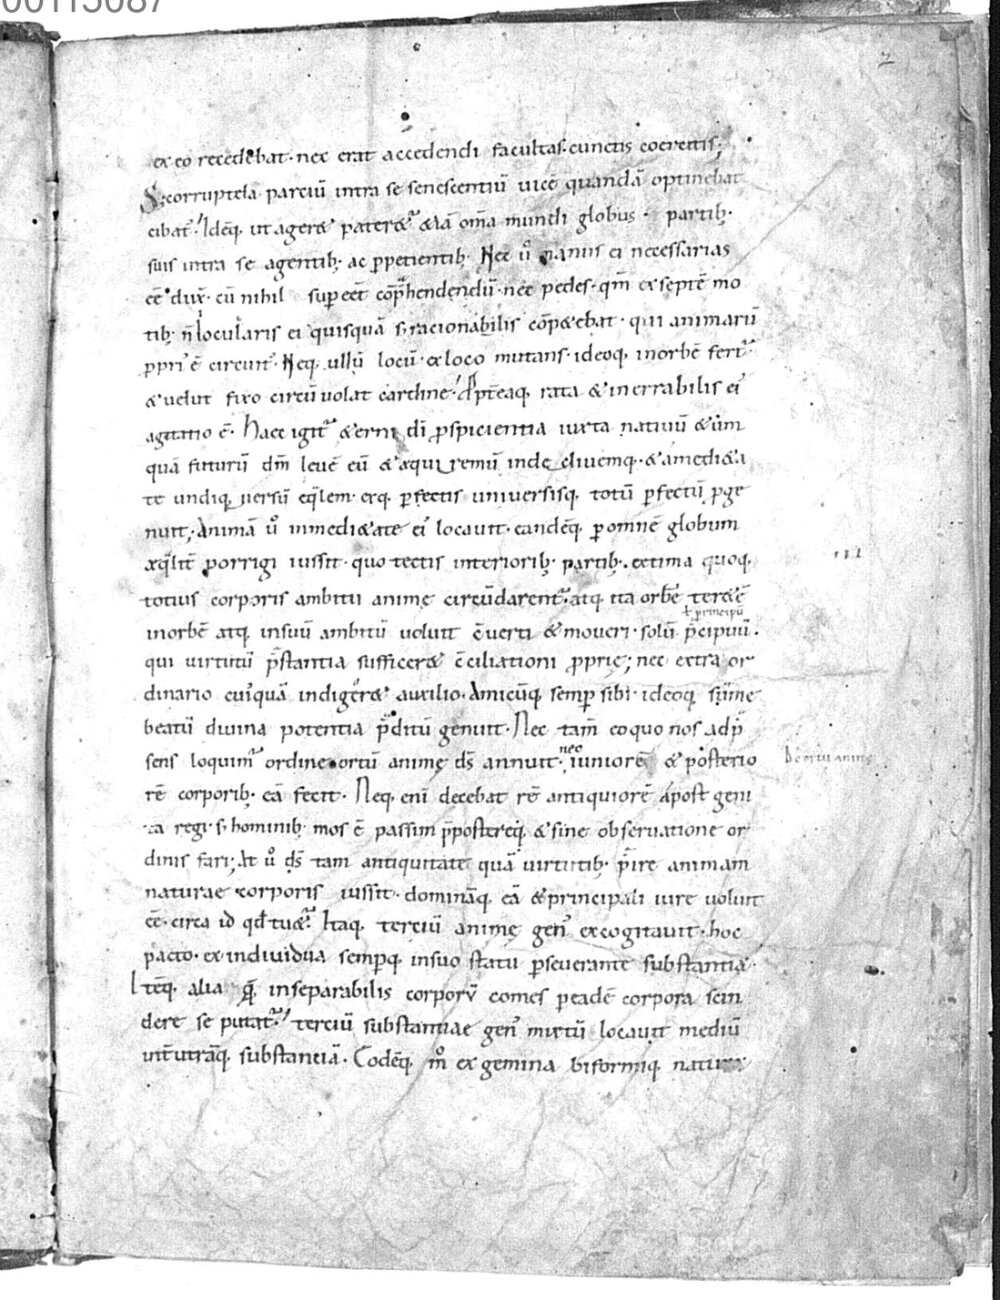 00115087
2
ex eo recedebat· nec erat accedendi facultas· cunctis coercitis;
S; corruptela parciū intra se senescentiū vicē quandā optinebat
cibat᷒· Idēq; ut ageret pateret᷒ & iā om̄a mundi globus· partib;
suis intra se agentib; ac p̱petientib; Nec u͛o manus ei necessarias
cē dux̄· cū nihil supeēt cōp̄hendendū· nec pedes· qm̄ ex septē mo
tib; n̄ locularis ei quisquā s; racionabilis cōpetebat· qui animarū
ppri ē circuit᷒· Neq; ullū locū ex loco mutans· ideoq; inorbē fert᷒
& velut fixo circū volat cardine· Apt̄eaq; rata & inerrabilis ei᷒
agitatio ē· Haec igit᷒ & erni dī p̱spicientia iuxta nativū & ūm
quā futurū dm̄ levē eū & aequiremū indeclivemq; & a medi&a
te undiq; versū eq̄lem· exq; p̱fectis universisq; totū p̱fectū p̱ge
nuit; Animā u͛o inmedi&ate ei᷒ locavit· eandēq; p̱ omnē globum
aeq̄lit̄ porrigi iussit· quo tectis interiorib; partib;· extima quoq;
totius corporis ambitu animę circūdarent᷒· atq; ita orbē ter&ē
ł principū
inorbē atq; insuū ambitū voluit c̄verti & moveri· solū p̄cipuū·
qui virtutū p̄stantia sufficer& c̄ciliationi p̱prię; nec extra or
dinario cuiquā indiger& auxilio· Amicūq; semp̱ sibi· ideoq; sūme
beatū divina potentia p̄ditū genuit· Nec tam̄ eo quo nos ad p̄
sens loquim᷒ ordine ortū animę d̄s annuit· nec iuniorē & posterio
De ortu anime
rē corporib; eā fecit· Neq; enī decebat rē antiquiorē a post geni
ta regi· s; hominib; mos ē passim p̄postereq; & sine observatione or
dinis fari; At u͛o d̄s tam antiquitate quā virtutib; p̄ire animam
naturae corporis iussit· domināq; eā & principali iure voluit
eē· circa id qd̄ tuet᷒· Itaq; terciū animę gen᷒ excogitavit· hoc
pacto· ex individua semp̱q; insuo statu p̱severante substantia·
Itēq; alia q̄ inseparabilis corporū comes p̱ eadē corpora scin
dere se putat᷒· terciū substantiae gen᷒ mixtū locavit mediū
int̄ utrāq; substantiā· Eodēq; m͛o ex gemina biformiq; natura